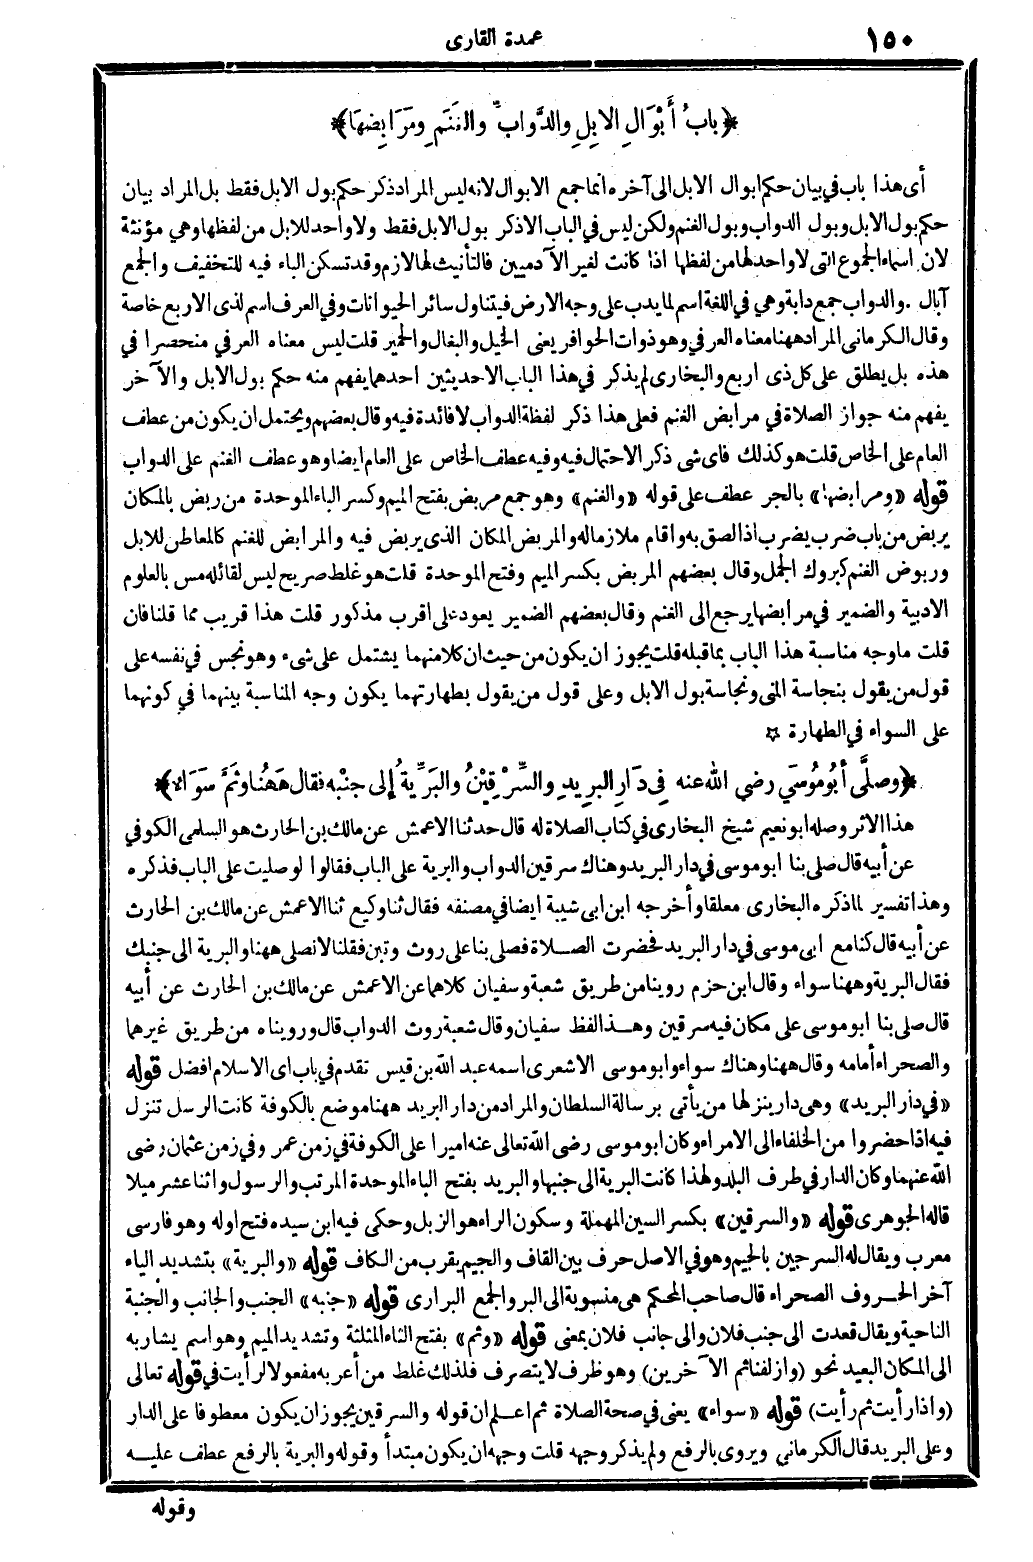 ١٥٠
عمدة القارى
﴿باب أبوال الابل والدواب والغنم ومرابضها﴾
أى هذا باب في بيان حكم ابوال الابل الى آخره انما جمع الابوال لانه ليس المراد ذكر حكم بول الابل فقط بل المراد بيان
حكم بول الابل وبول الدواب وبول الغنم ولكن ليس في الباب الا ذكر بول الابل فقط ولا واحد للابل من لفظها وهي مؤنثة
لان اسماء الجموع التى لا واحد لها من لفظها اذا كانت لغير الآدميين فالتأنيث لها لازم وقد تسكن الباء فيه للتخفيف والجمع
آبال . والدواب جمع دابة وهي في اللغة اسم لما يدب على وجه الارض فيتناول سائر الحيوانات وفي العرف اسم لذى الاربع خاصة
وقال الكرمانى المراد ههنا معناه العرفي وهو ذوات الحوافر يعنى الخيل والبغال والحمير قلت ليس معناه العرفي منحصرا في
هذه بل يطلق على كل ذى اربع والبخارى لم يذكر في هذا الباب الا حديثين احدهما يفهم منه حكم بول الابل والآخر
يفهم منه جواز الصلاة في مرابض الغنم فعلى هذا ذكر لفظة الدواب لا فائدة فيه وقال بعضهم ويحتمل ان يكون من عطف
العام على الخاص قلت هو كذلك فاى شى ذكر الاحتمال فيه وفيه عطف الخاص على العام ايضا وهو عطف الغنم على الدواب
قوله «ومرابضها» بالجر عطف على قوله «والغنم» وهو جمع مربض بفتح الميم وكسر الباء الموحدة من ربض بالمكان
يربض من باب ضرب يضرب اذا لصق به واقام ملازما له والمربض المكان الذى يربض فيه والمرابض للغنم كالمعاطن للابل
وربوض الغنم كبروك الجمل وقال بعضهم المربض بكسر الميم وفتح الموحدة قلت هو غلط صريح ليس لقائله مس بالعلوم
الادبية والضمير في مرابضها يرجع الى الغنم وقال بعضهم الضمير يعود على اقرب مذكور قلت هذا قريب مما قلنا فان
قلت ما وجه مناسبة هذا الباب بما قبله قلت يجوز ان يكون من حيث ان كلا منهما يشتمل على شىء وهو نجس في نفسه على
قول من يقول بنجاسة المنى ونجاسة بول الابل وعلى قول من يقول بطهارتهما يكون وجه المناسبة بينهما في كونهما
على السواء في الطهارة ☆
﴿وصلى أبو موسى رضي الله عنه في دار البريد والسرقين والبرية إلى جنبه فقال ههنا وثم سواء﴾
هذا الاثر وصله ابو نعيم شيخ البخارى في كتاب الصلاة له قال حدثنا الاعمش عن مالك بن الحارث هو السلمى الكوفي
عن أبيه قال صلى بنا ابو موسى في دار البريد وهناك سرقين الدواب والبرية على الباب فقالوا لو صليت على الباب فذكره
وهذا تفسير لما ذكره البخارى معلقا وأخرجه ابن ابى شيبة ايضا في مصنفه فقال ثنا وكيع ثنا الاعمش عن مالك بن الحارث
عن أبيه قال كنا مع ابى موسى في دار البريد فحضرت الصلاة فصلى بنا على روث وتبن فقلنا لا نصلى ههنا والبرية الى جنبك
فقال البرية وههنا سواء وقال ابن حزم روينا من طريق شعبة وسفيان كلاهما عن الاعمش عن مالك بن الحارث عن أبيه
قال صلى بنا ابو موسى على مكان فيه سرقين وهذا لفظ سفيان وقال شعبة روث الدواب قال ورويناه من طريق غيرهما
والصحراء أمامه وقال ههنا وهناك سواء وابو موسى الاشعرى اسمه عبد الله بن قيس تقدم في باب اى الاسلام افضل قوله
«في دار البريد» وهى دار ينزلها من يأتى برسالة السلطان والمراد من دار البريد ههنا موضع بالكوفة كانت الرسل تنزل
فيه اذا حضروا من الخلفاء الى الامراء وكان ابو موسى رضى الله تعالى عنه اميرا على الكوفة في زمن عمر وفي زمن عثمان رضى
الله عنهما وكان الدار في طرف البلد ولهذا كانت البرية الى جنبها والبريد بفتح الباء الموحدة المرتب والرسول واثنا عشر ميلا
قاله الجوهرى قوله «والسرقين» بكسر السين المهملة وسكون الراء هو الزبل وحكى فيه ابن سيده فتح اوله وهو فارسى
معرب ويقال له السرجين بالجيم وهو في الاصل حرف بين القاف والجيم يقرب من الكاف قوله «والبرية» بتشديد الياء
آخر الحروف الصحراء قال صاحب المحكم هى منسوبة الى البر والجمع البرارى قوله «جنبه» الجنب والجانب والجنبة
الناحية ويقال قعدت الى جنب فلان والى جانب فلان بمعنى قوله «وثم» بفتح الثاء المثلثة وتشديد الميم وهو اسم يشار به
الى المكان البعيد نحو (وازلفنا ثم الآخرين) وهو ظرف لا يتصرف فلذلك غلط من أعربه مفعولا لرأيت في قوله تعالى
(واذا رأيت ثم رأيت) قوله «سواء» يعنى في صحة الصلاة ثم اعلم ان قوله والسرقين يجوز ان يكون معطوفا على الدار
وعلى البريد قال الكرماني ويروى بالرفع ولم يذكر وجهه قلت وجهه ان يكون مبتدأ وقوله والبرية بالرفع عطف عليه
وقوله